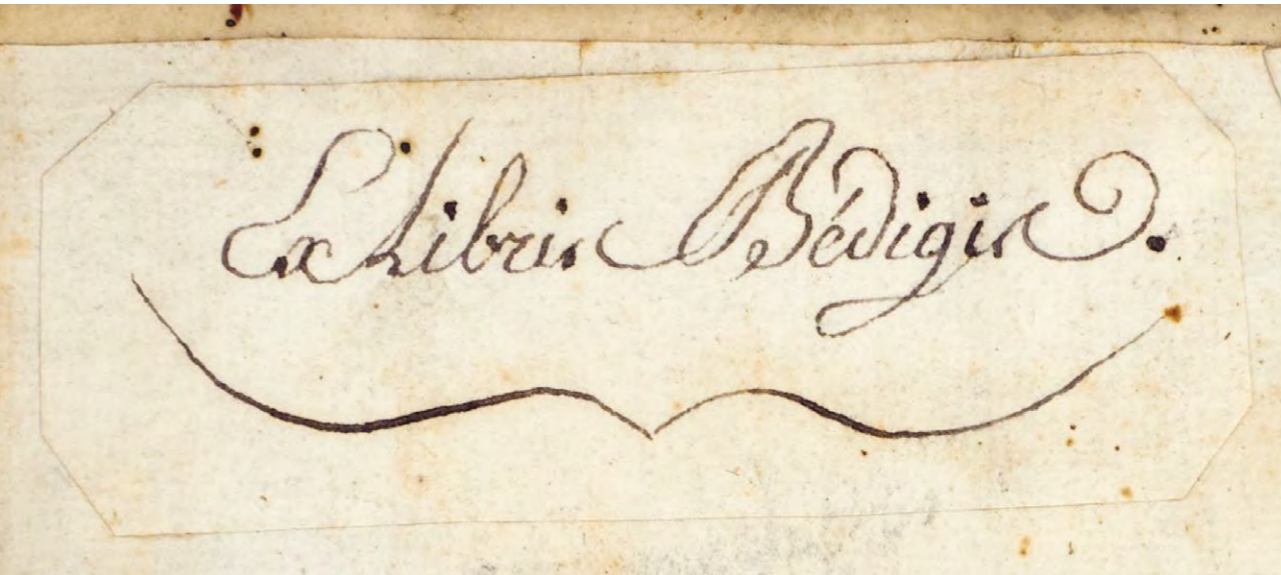 Ex Libris Bédigis.